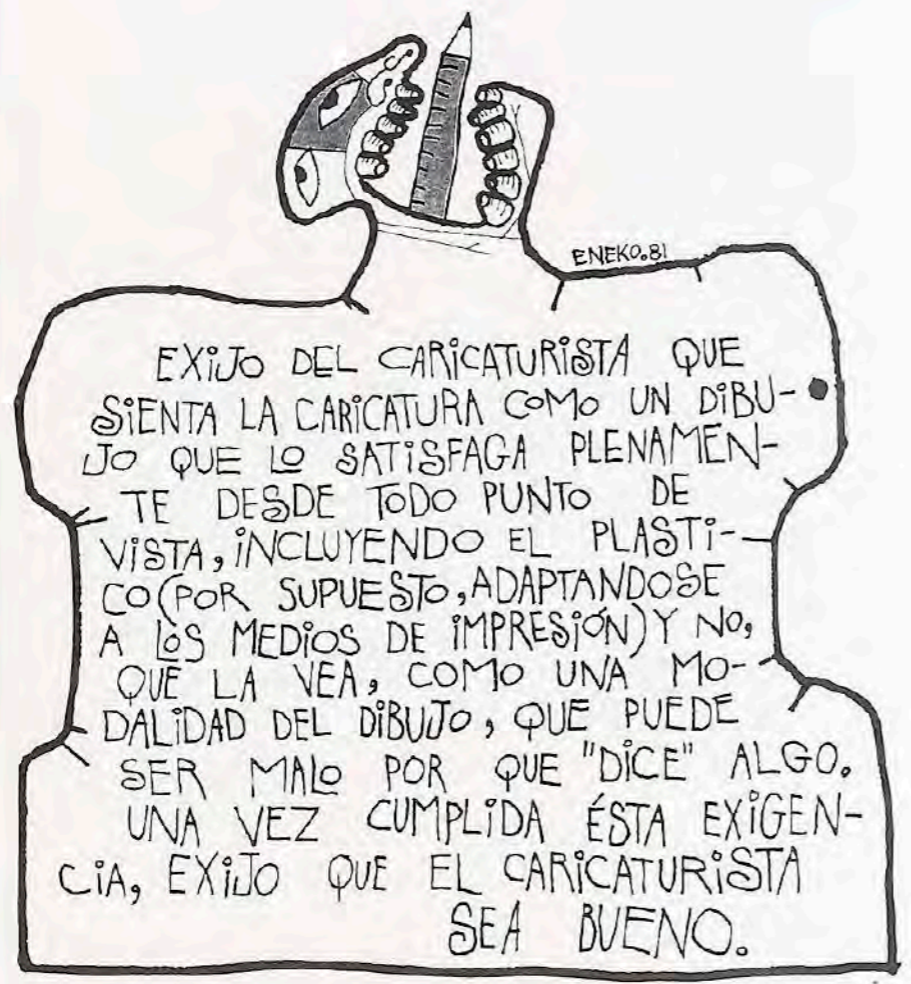 ENEKO.81
EXIJO DEL CARICATURISTA QUE
SIENTA LA CARICATURA COMO UN DIBU-
JO QUE LO SATISFAGA PLENAMEN-
TE DESDE TODO PUNTO DE
VISTA, INCLUYENDO EL PLASTI-
CO (POR SUPUESTO, ADAPTANDOSE
A LOS MEDIOS DE IMPRESIÓN) Y NO,
QUE LA VEA, COMO UNA MO-
DALIDAD DEL DIBUJO, QUE PUEDE
SER MALO POR QUE "DICE" ALGO.
UNA VEZ CUMPLIDA ÉSTA EXIGEN-
CIA, EXIJO QUE EL CARICATURISTA
SEA BUENO.